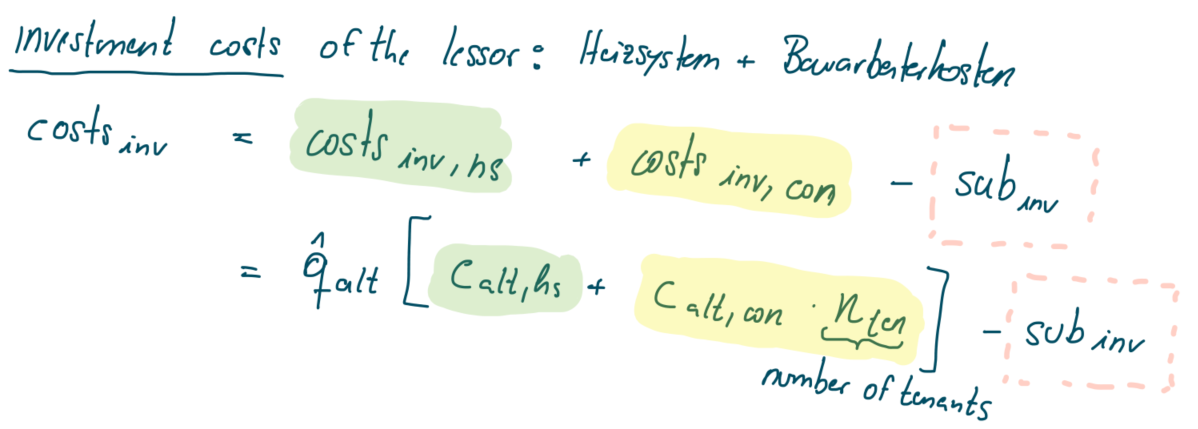 investment costs of the lessor: Heizsystem + Bauarbeiterkosten
costs inv = costs inv, hs + costs inv, con - sub inv
= q̂ alt [ C alt, hs + C alt, con · n ten ] - sub inv
number of tenants